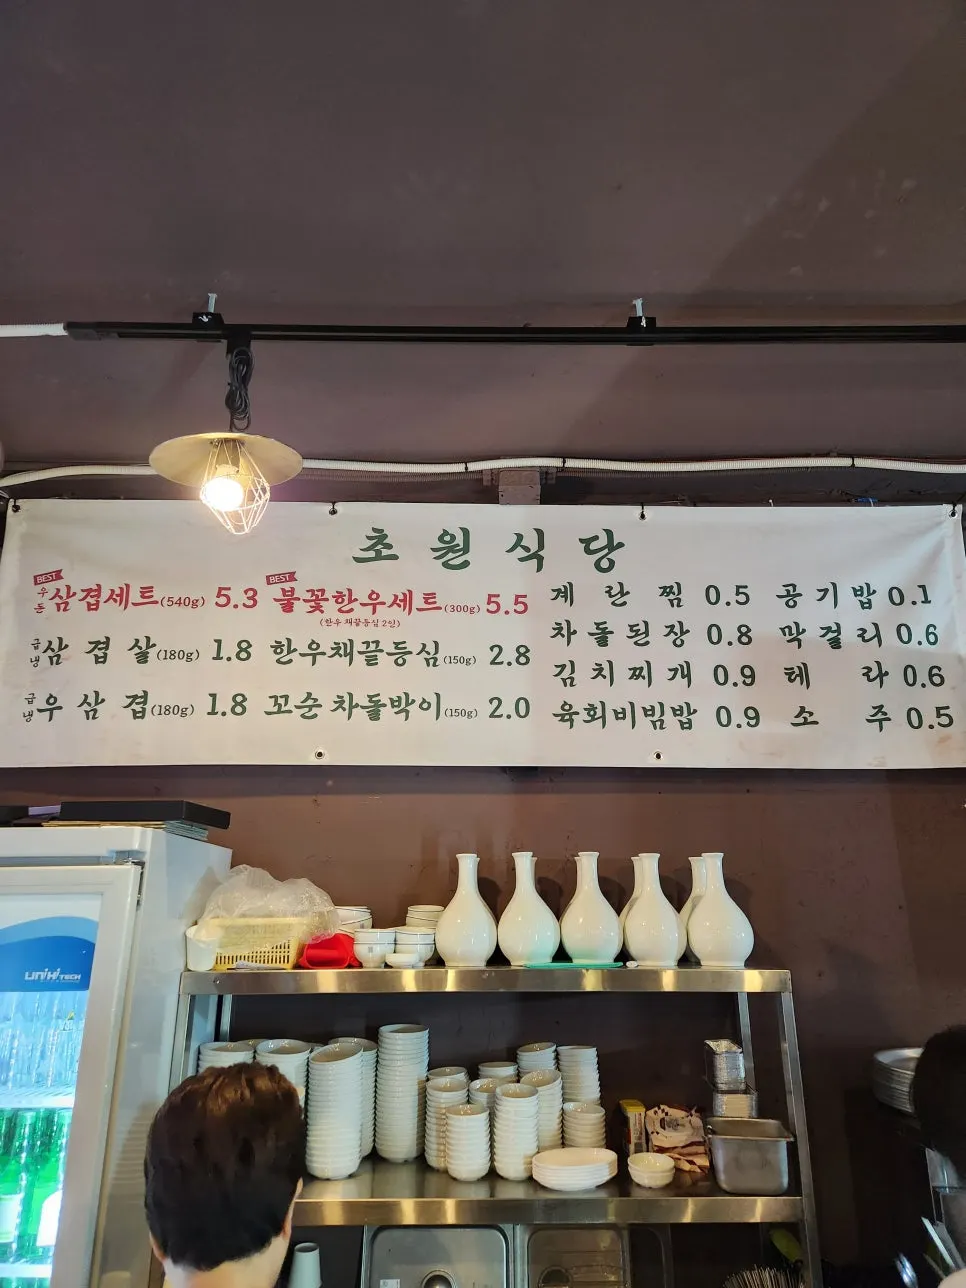 초원식당
BEST
우돈 삼겹세트(540g) 5.3
BEST
불꽃한우세트(300g) 5.5
(한우 채끝등심 2인)
급냉 삼겹살(180g) 1.8
한우채끝등심(150g) 2.8
급냉 우삼겹(180g) 1.8
꼬순 차돌박이(150g) 2.0
계란찜 0.5
공기밥 0.1
차돌된장 0.8
막걸리 0.6
김치찌개 0.9
테라 0.6
육회비빔밥 0.9
소주 0.5
UNIHITECH